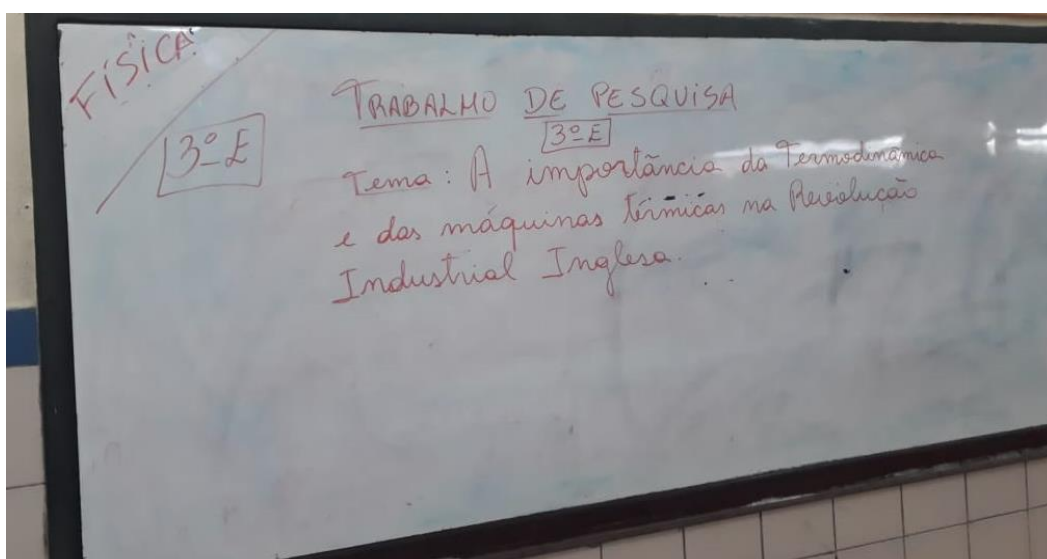 FÍSICA
3º E
TRABALHO DE PESQUISA
3º E
Tema: A importância da Termodinâmica
e das máquinas térmicas na Revolução
Industrial Inglesa.